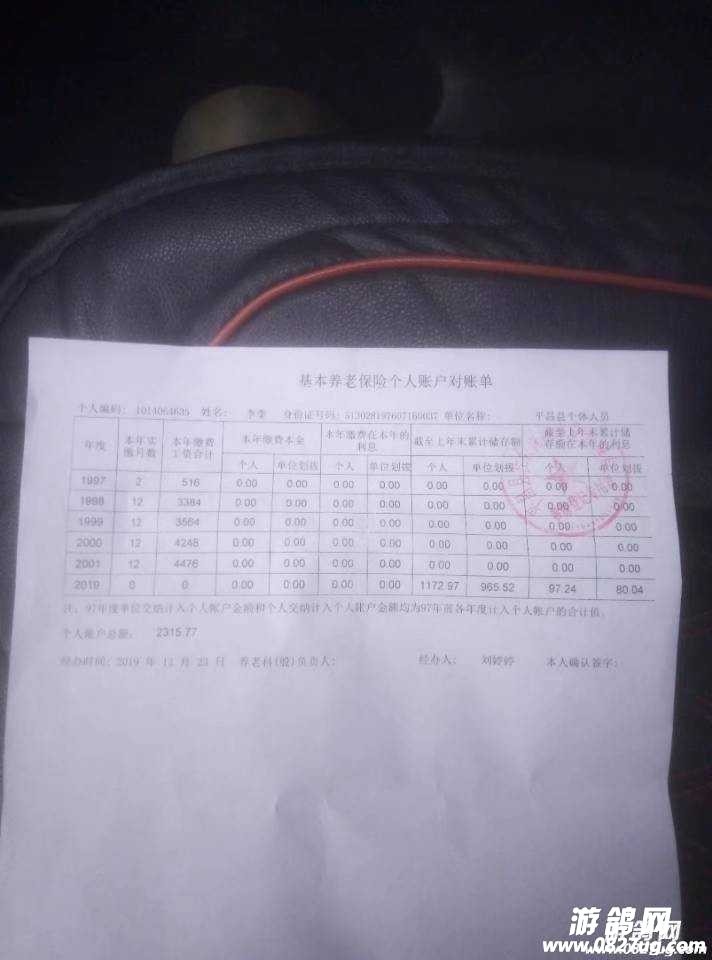 基本养老保险个人账户对账单
个人编码: 1014064635 姓名: 李 身份证号码: 513028197607160037 单位名称: 平昌县个体人员
年度 本年实缴月数 本年缴费工资合计 本年缴费本金 本年缴费在本年的利息 截至上年末累计储存额 截至上年末累计储存额在本年的利息
个人 单位划拨 个人 单位划拨 个人 单位划拨 个人 单位划拨
1997 2 516 0.00 0.00 0.00 0.00 0.00 0.00 0.00 0.00
1998 12 3384 0.00 0.00 0.00 0.00 0.00 0.00 0.00 0.00
1999 12 3564 0.00 0.00 0.00 0.00 0.00 0.00 0.00 0.00
2000 12 4248 0.00 0.00 0.00 0.00 0.00 0.00 0.00 0.00
2001 12 4476 0.00 0.00 0.00 0.00 0.00 0.00 0.00 0.00
2019 0 0 0.00 0.00 0.00 0.00 1172.97 965.52 97.24 80.04
注:97年度单位交纳计入个人账户金额和个人交纳计入个人账户金额均为97年前各年度计入个人账户的合计值。
个人账户总额: 2315.77
经办时间: 2019 年 12 月 23 日 养老科(股)负责人: 经办人: 刘婷婷 本人确认签字:
游鸽网
www.0827ug.com